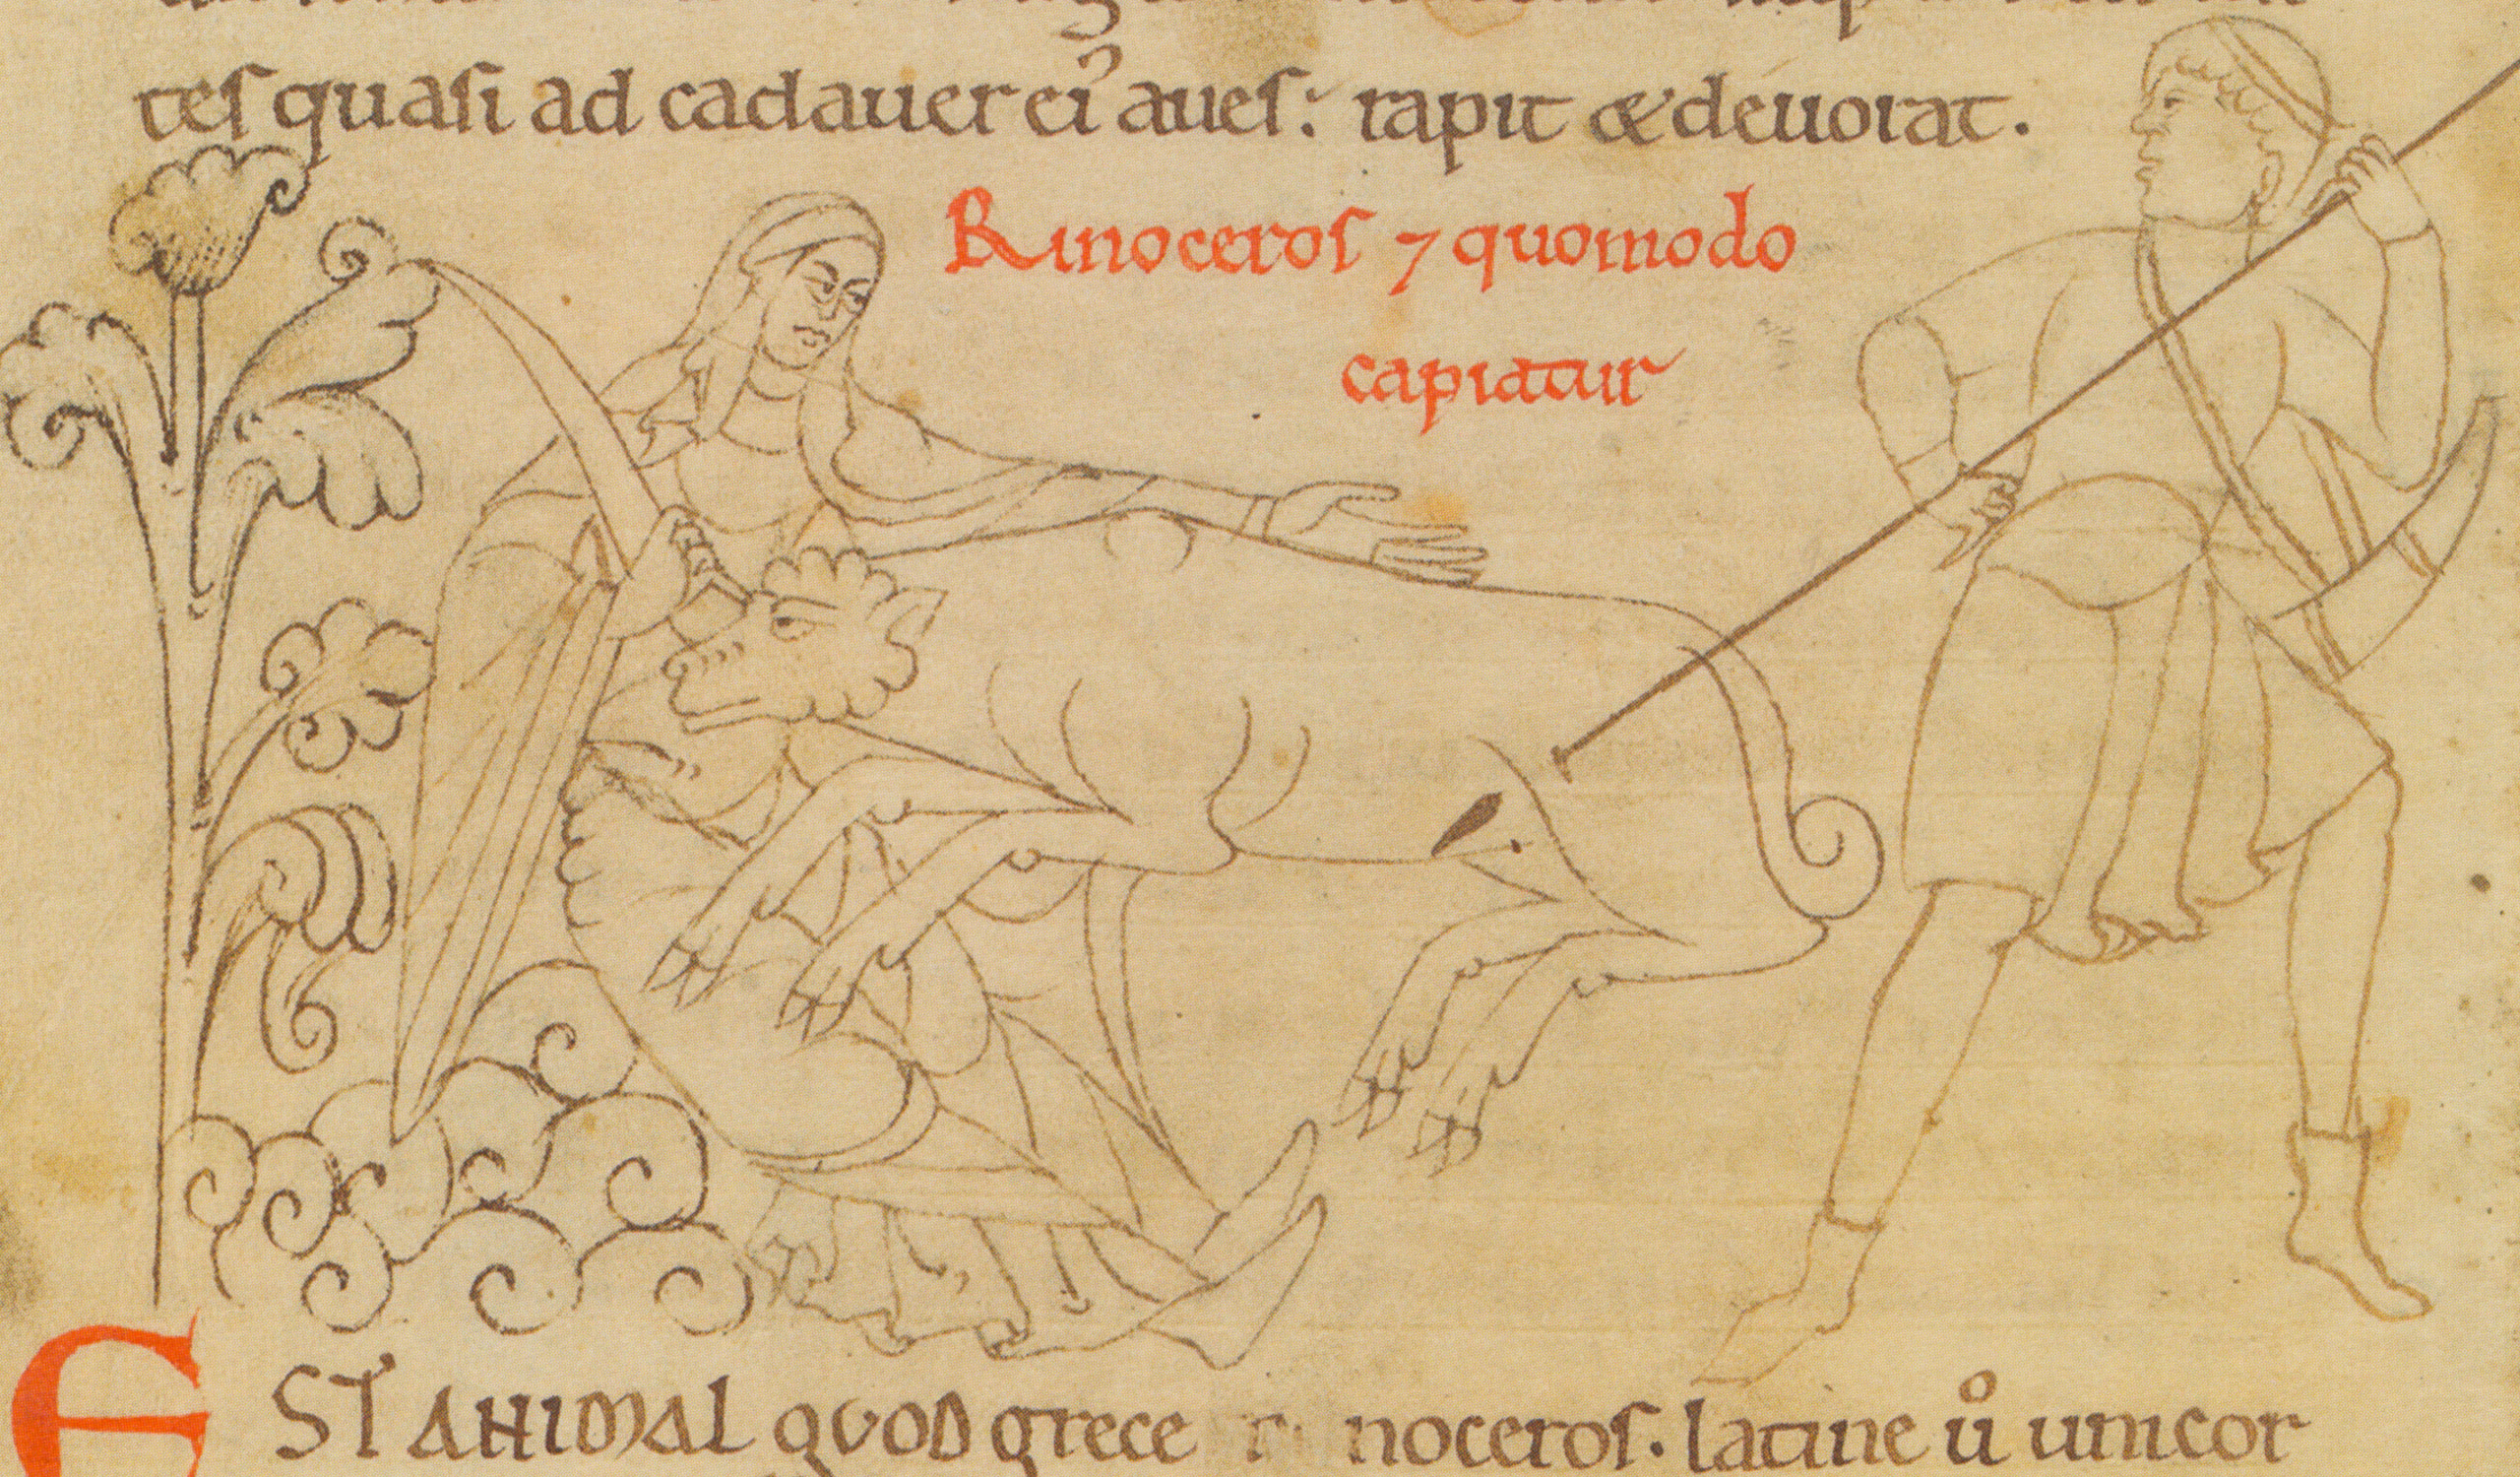 tes quasi ad cadauer ei᾽ aues: rapit & deuorat.
Rinoceros ⁊ quomodo
capiatur
EST ANIMAL QUOD grece r noceros. latine ů unicor